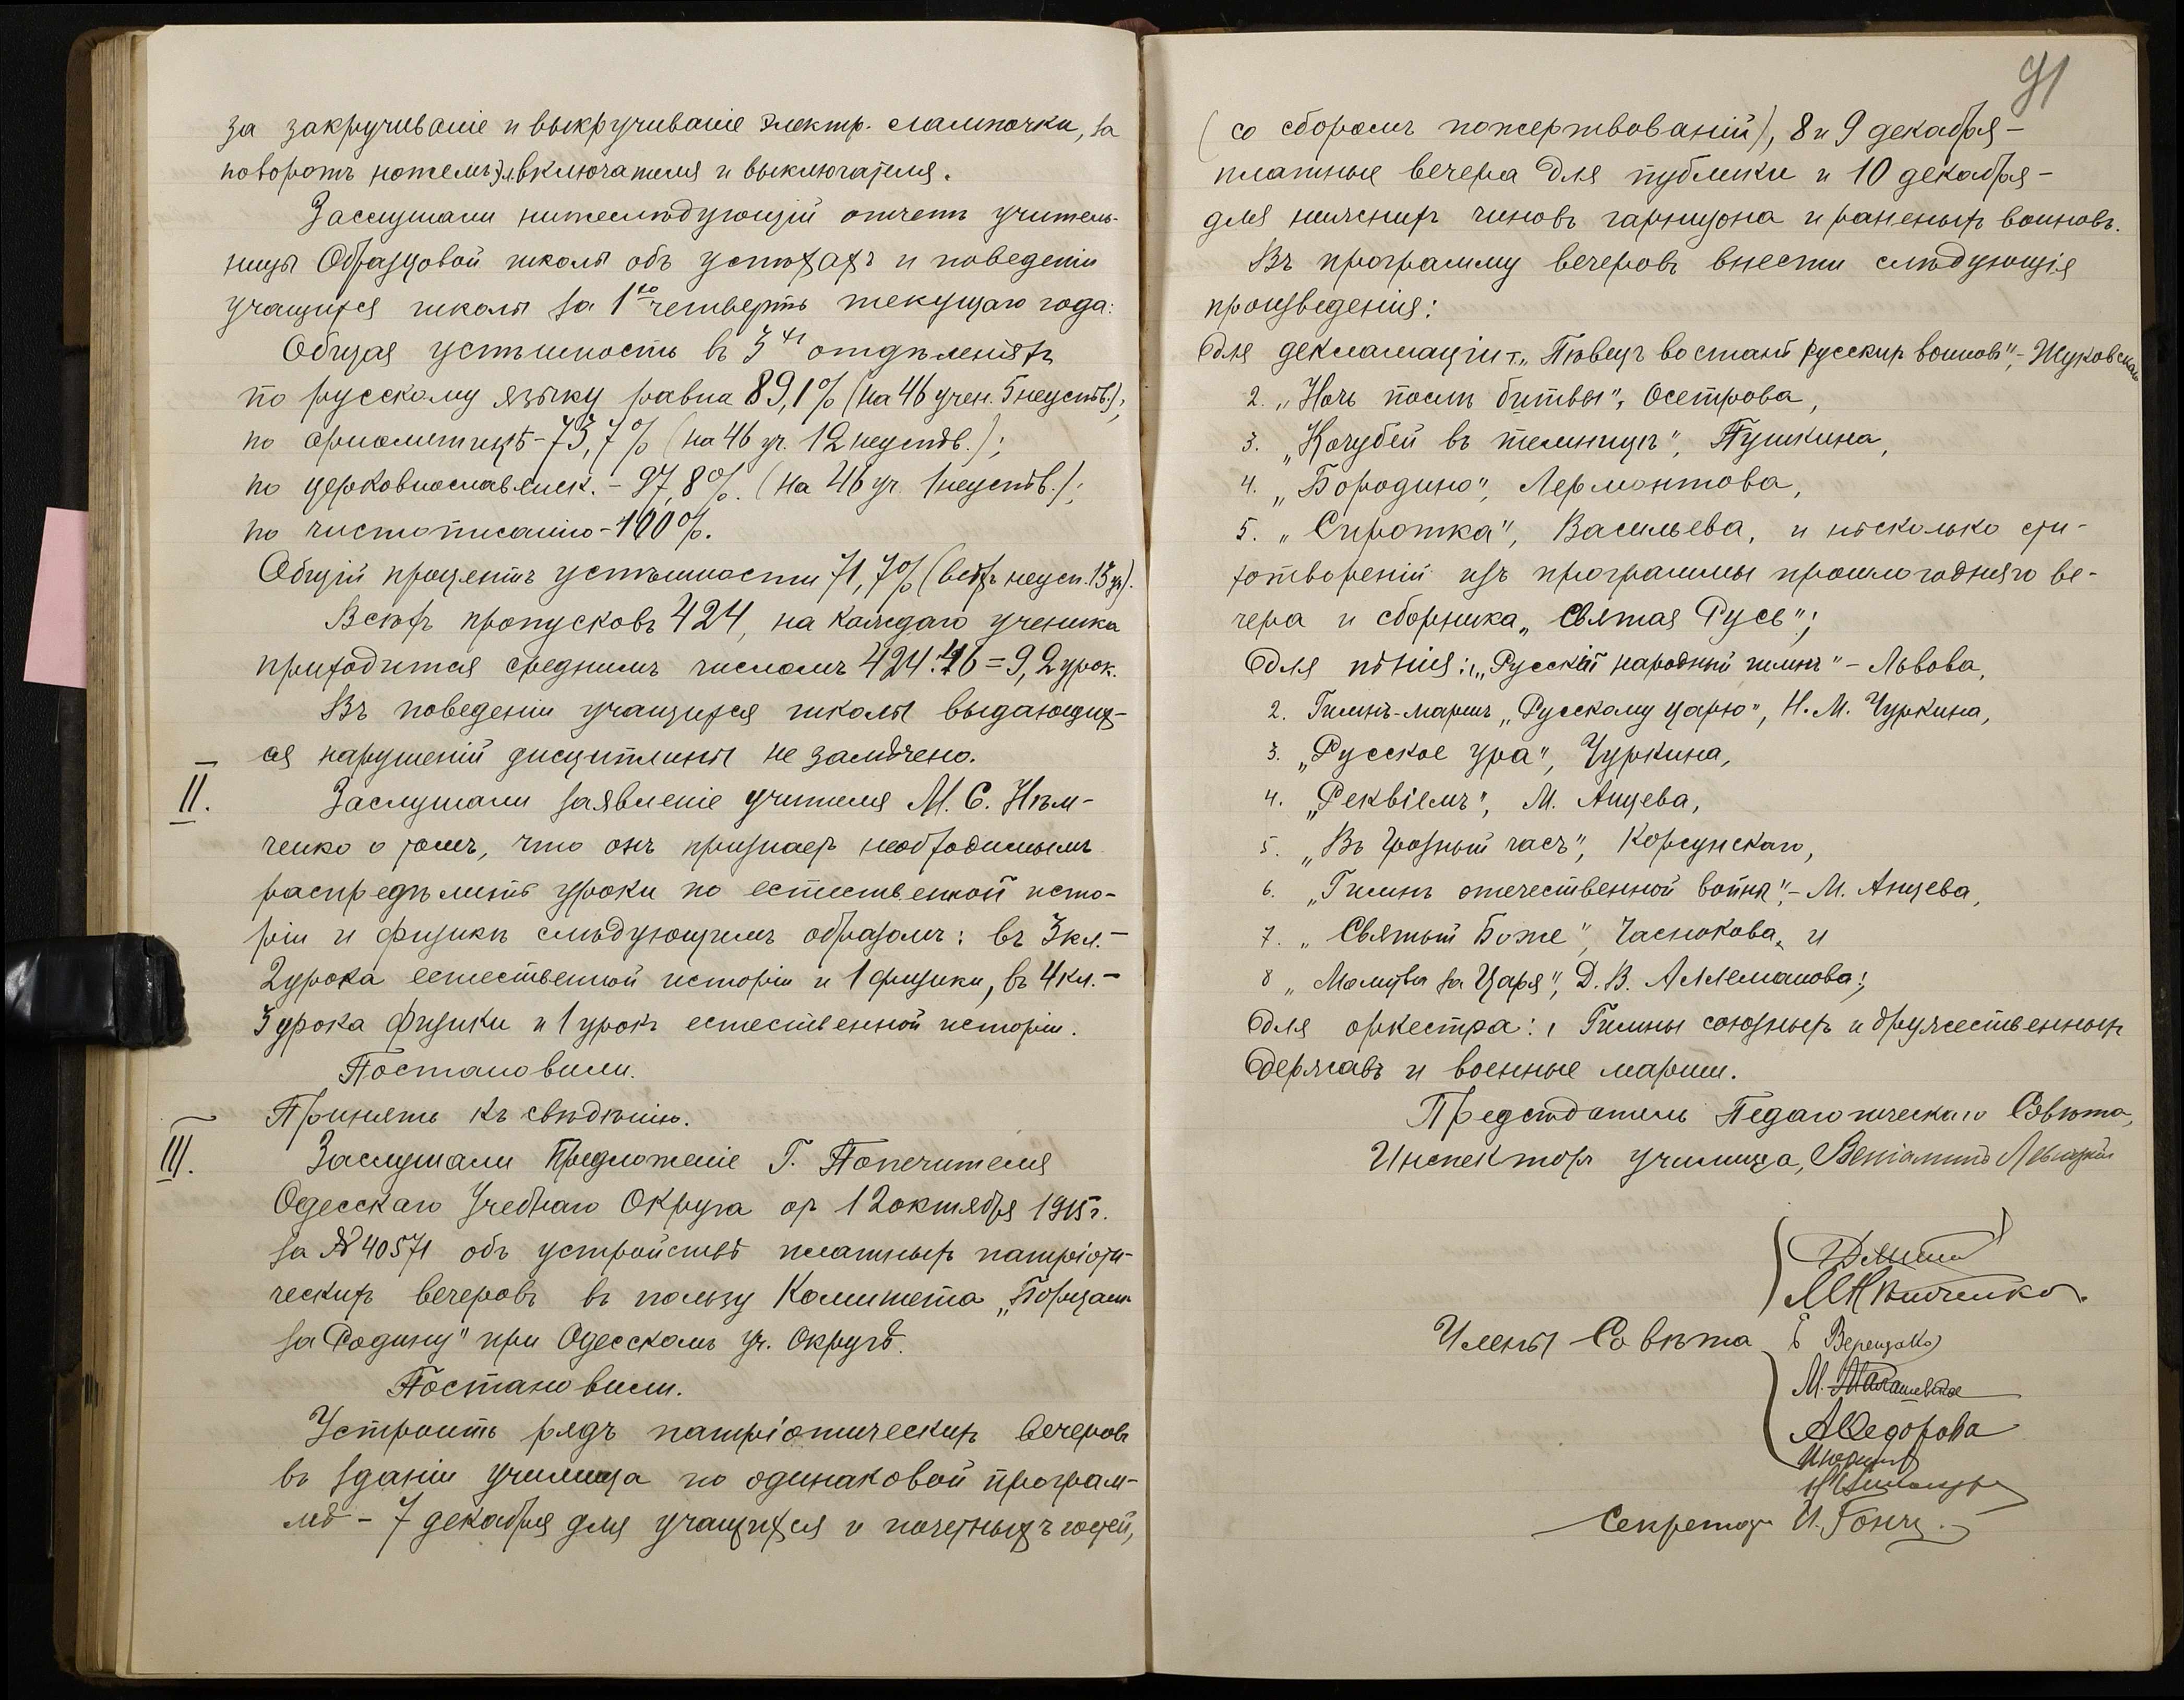 за закручиваніе и выкручиваніе электр. лампочки, за
поворотъ ножемъ эл. включателя и выключателя.
Заслушали нижеслѣдующій отчетъ учитель-
ницы Образцовой школы объ успѣхахъ и поведеніи
учащихся школы за 1ю четверть текущаго года:
Общая успѣшность въ 3хъ отдѣленіяхъ
по русскому языку равна 89,1% (на 46 учен. 5 неуспѣв.);
по ариѳметикѣ - 73,7% (на 46 уч. 12 неуспѣв.);
по церковнославянск. - 97,8%. (на 46 уч. 1 неуспѣв.);
по чистописанію - 100%.
Общій процентъ успѣшности 71,7% (всѣхъ неусп. 13 уч.).
Всѣхъ пропусковъ 424, на каждаго ученика
приходится среднимъ числомъ 424:46=9,2 урок.
Въ поведеніи учащихся школы выдающих-
ся нарушеній дисциплины не замѣчено.
II. Заслушали заявленіе учителя М. С. Нѣм-
ченко о томъ, что онъ признаетъ необходимымъ
распредѣлить уроки по естественной исто-
ріи и физикѣ слѣдующимъ образомъ: въ 3 кл. -
2 урока естественной исторіи и 1 физики, въ 4 кл. -
3 урока физики и 1 урокъ естественной исторіи.
Постановили.
Принять къ свѣдѣнію.
III. Заслушали Предложеніе Г. Попечителя
Одесскаго Учебнаго Округа от 12 октября 1915 г.
за № 40571 объ устройствѣ платныхъ патріоти-
ческихъ вечеровъ въ пользу Комитета „Борцамъ
за Родину" при Одесскомъ уч. Округѣ.
Постановили.
Устроить рядъ патріотическихъ вечеровъ
въ зданіи училища по одинаковой програм-
мѣ - 7 декабря для учащихся и почетныхъ гостей,
91
(со сборомъ пожертвованій), 8 и 9 декабря -
платные вечера для публики и 10 декабря -
для нижнихъ чиновъ гарнизона и раненыхъ воиновъ.
Въ программу вечеровъ внести слѣдующія
произведенія:
Для декламаціи: 1. „Пѣвецъ во станѣ русскихъ воиновъ", - Жуковскаго
2. „Ночь послѣ битвы", Осетрова,
3. „Кочубей въ темницѣ", Пушкина,
4. „Бородино", Лермонтова,
5. „Сиротка", Васильева, и нѣсколько сти-
хотвореній изъ программы прошлогодняго ве-
чера и сборника „Святая Русь";
Для пѣнія: 1. „Русскій народный гимнъ" - Львова,
2. Гимнъ-маршъ „Русскому царю", Н. М. Чуркина,
3. „Русское ура", Чуркина,
4. „Реквіемъ", М. Анцева,
5. „Въ грозный часъ", Корсунскаго,
6. „Гимнъ отечественной войны", - М. Анцева,
7. „Святый Боже", Чеснокова, и
8 „Молитва за Царя", Д. В. Аллеманова;
Для оркестра: 1 Гимны союзныхъ и дружественныхъ
Державъ и военные марши.
Предсѣдатель Педагогическаго Совѣта,
Инспекторъ училища, Веніаминъ Левицкій
МНѣмченко.
Члены Совѣта
Верещака
М.
АФедорова
Секретарь И. Гонч